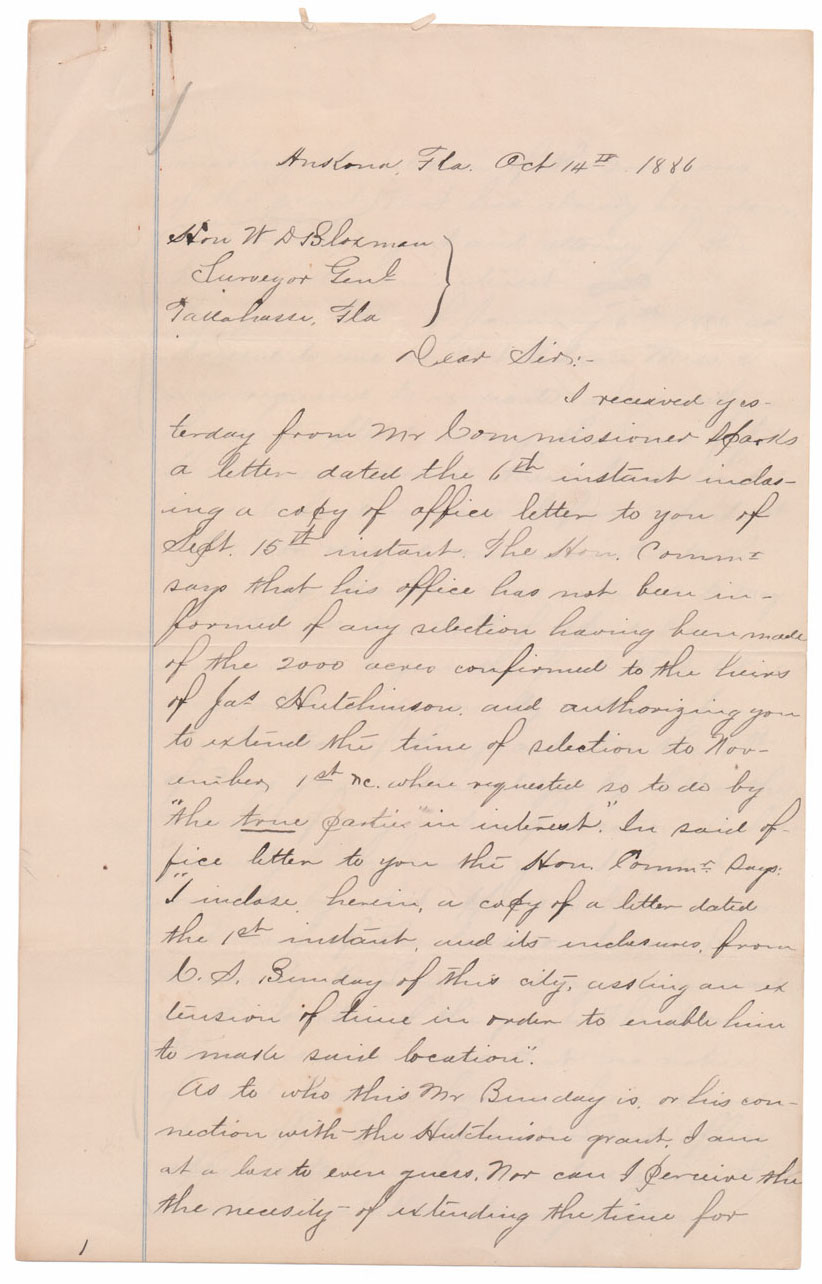 Ankona, Fla. Oct 14th 1886
Hon W D Bloxman
Surveyor Genl
Tallahasse, Fla
Dear Sir:-
I received yes-
terday from Mr Commissioner Sparks
a letter dated the 6th instant inclos-
ing a copy of office letter to you of
Sept. 15th instant. The Hon. Commr
says that his office has not been in-
formed of any selection having been made
of the 2000 acres confirmed to the heirs
of Jas Hutchinson, and authorizing you
to extend the time of selection to Nov-
ember, 1st &c. where requested so to do by
"the true parties in interest". In said of-
fice letter to you the Hon. Commr says:
"I inclose, herein, a copy of a letter dated
the 1st instant, and its inclosures, from
C. S. Bunday of this city, asking an ex
tension of time in order to enable him
to make said location".
As to who this Mr Bunday is, or his con-
nection with the Hutchinson grant, I am
at a lose to even guess. Nor can I perceive the
the necesity of extending the time for
1